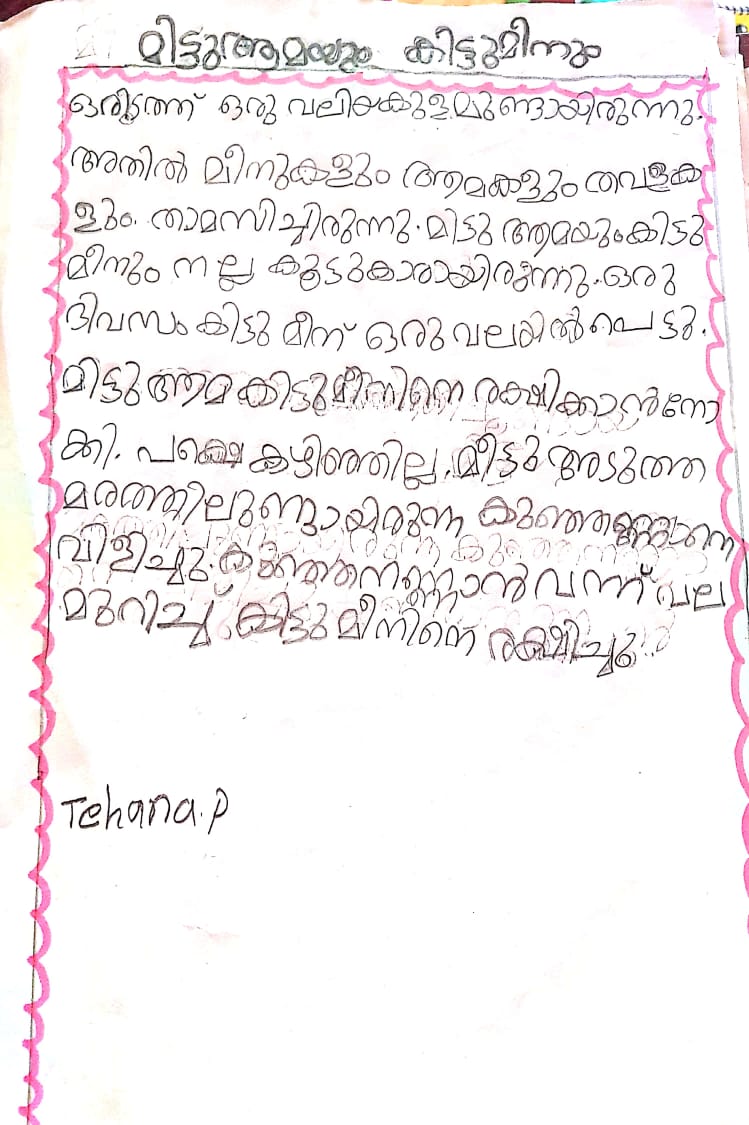 മിട്ടുആമയും കിട്ടുമീനും
ഒരിടത്ത് ഒരു വലിയകുളമുണ്ടായിരുന്നു.
അതിൽ മീനുകളും ആമകളും തവളക
ളും താമസിച്ചിരുന്നു. മിട്ടു ആമയുംകിട്ടു
മീനും നല്ല കൂട്ടുകാരായിരുന്നു. ഒരു
ദിവസം കിട്ടു മീന് ഒരു വലയിൽപെട്ടു.
മിട്ടു ആമ കിട്ടുമീനിനെ രക്ഷിക്കാൻനോ
ക്കി. പക്ഷെ കഴിഞ്ഞില്ല. മിട്ടു അടുത്ത
മരത്തിലുണ്ടായിരുന്ന കുഞ്ഞനണ്ണാനെ
വിളിച്ചു. കുഞ്ഞനണ്ണാൻ വന്ന് വല
മുറിച്ച് കിട്ടു മീനിനെ രക്ഷിച്ചു.
Tehana.P